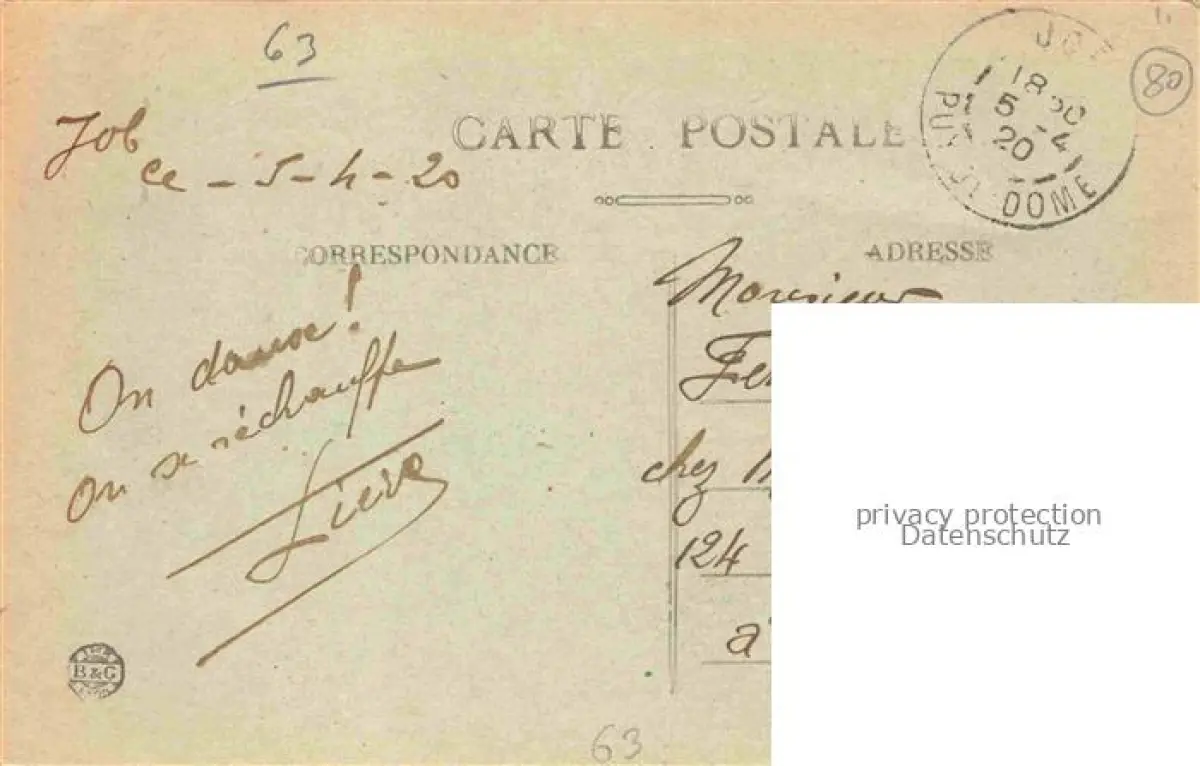 63
80
JOB
18 30
5 -4
20
PUY-D DOME
CARTE POSTALE
Job
ce - 5-4-20
CORRESPONDANCE
ADRESSE
On danse!
on se réchauffe
Monsieur
chez
124
à
B & G
63
privacy protection
Datenschutz